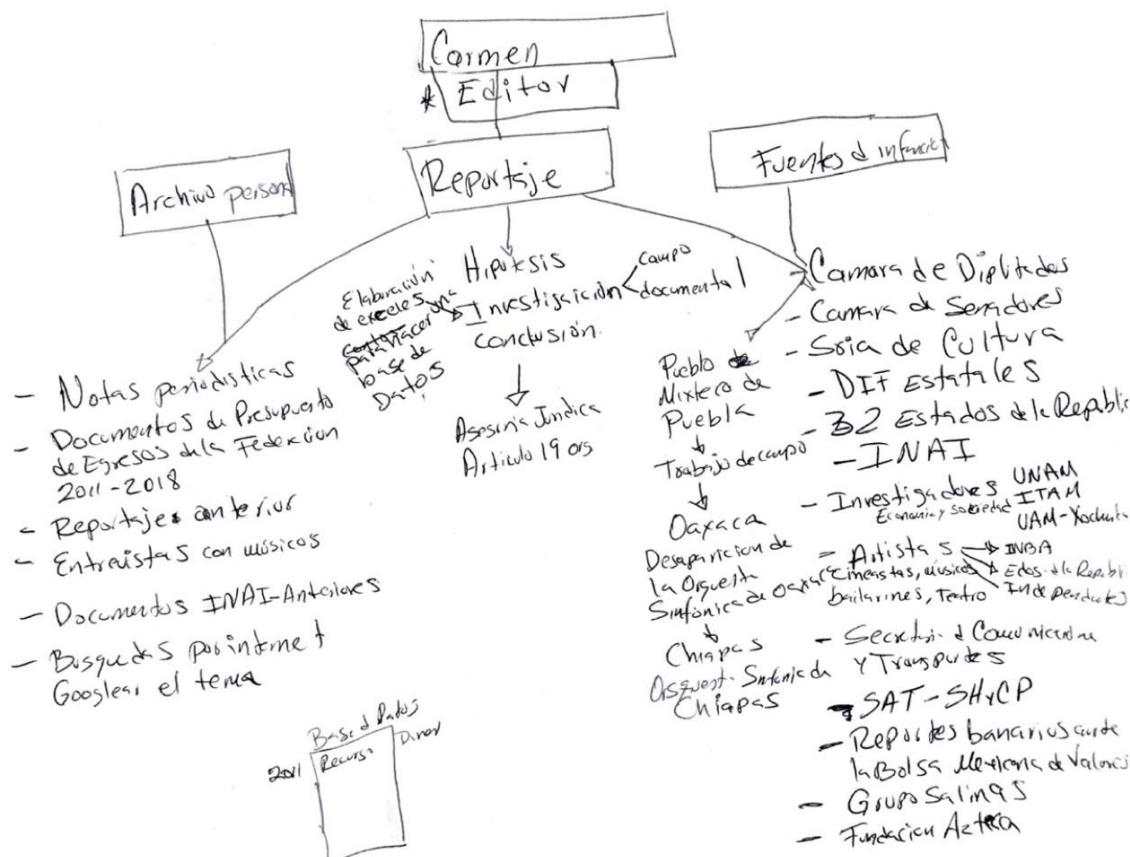 Carmen
* Editor
Reportaje
Archivo personal
Fuentes d
Hipotesis
Investigaición
campo
documental
conclusión.
Elaboración
de exceles
para hacer una
base de
Datos
Asesoria Juridica
Articulo 19 ors
- Notas periodisticas
- Documentos de Presupuesto
de Egresos de la Federacion
2011-2018
- Reportaje anterior
- Entrevistas con músicos
- Documentos INAI-Anteriores
- Busquedas por internet
Googlear el tema
Base d Datos
2011
Recurso
Pueblo
Mixteco de
Puebla
Trabajo de campo
Oaxaca
Desaparicion de
la Orquesta
Sinfónica de Oaxaca
Chiapas
Orsquest. Sinfonica de
Chiapas
- Camara de Diputados
- Camara de Senadores
- Sria de Cultura
- DIF Estatales
- 32 Estados de la Republic
- INAI
- Investigadores
Economia y sociedad
UNAM
ITAM
UAM-
- Artistas
Cineastas, músicos
bailarines, Teatro
INBA
Edos. de la Republi
Independientes
- d Comunicacion
y Transportes
- SAT-SHyCP
- Reportes bancarios ante
la Bolsa Mexicana de Valores
- Grupo Salinas
- Fundacion Azteca